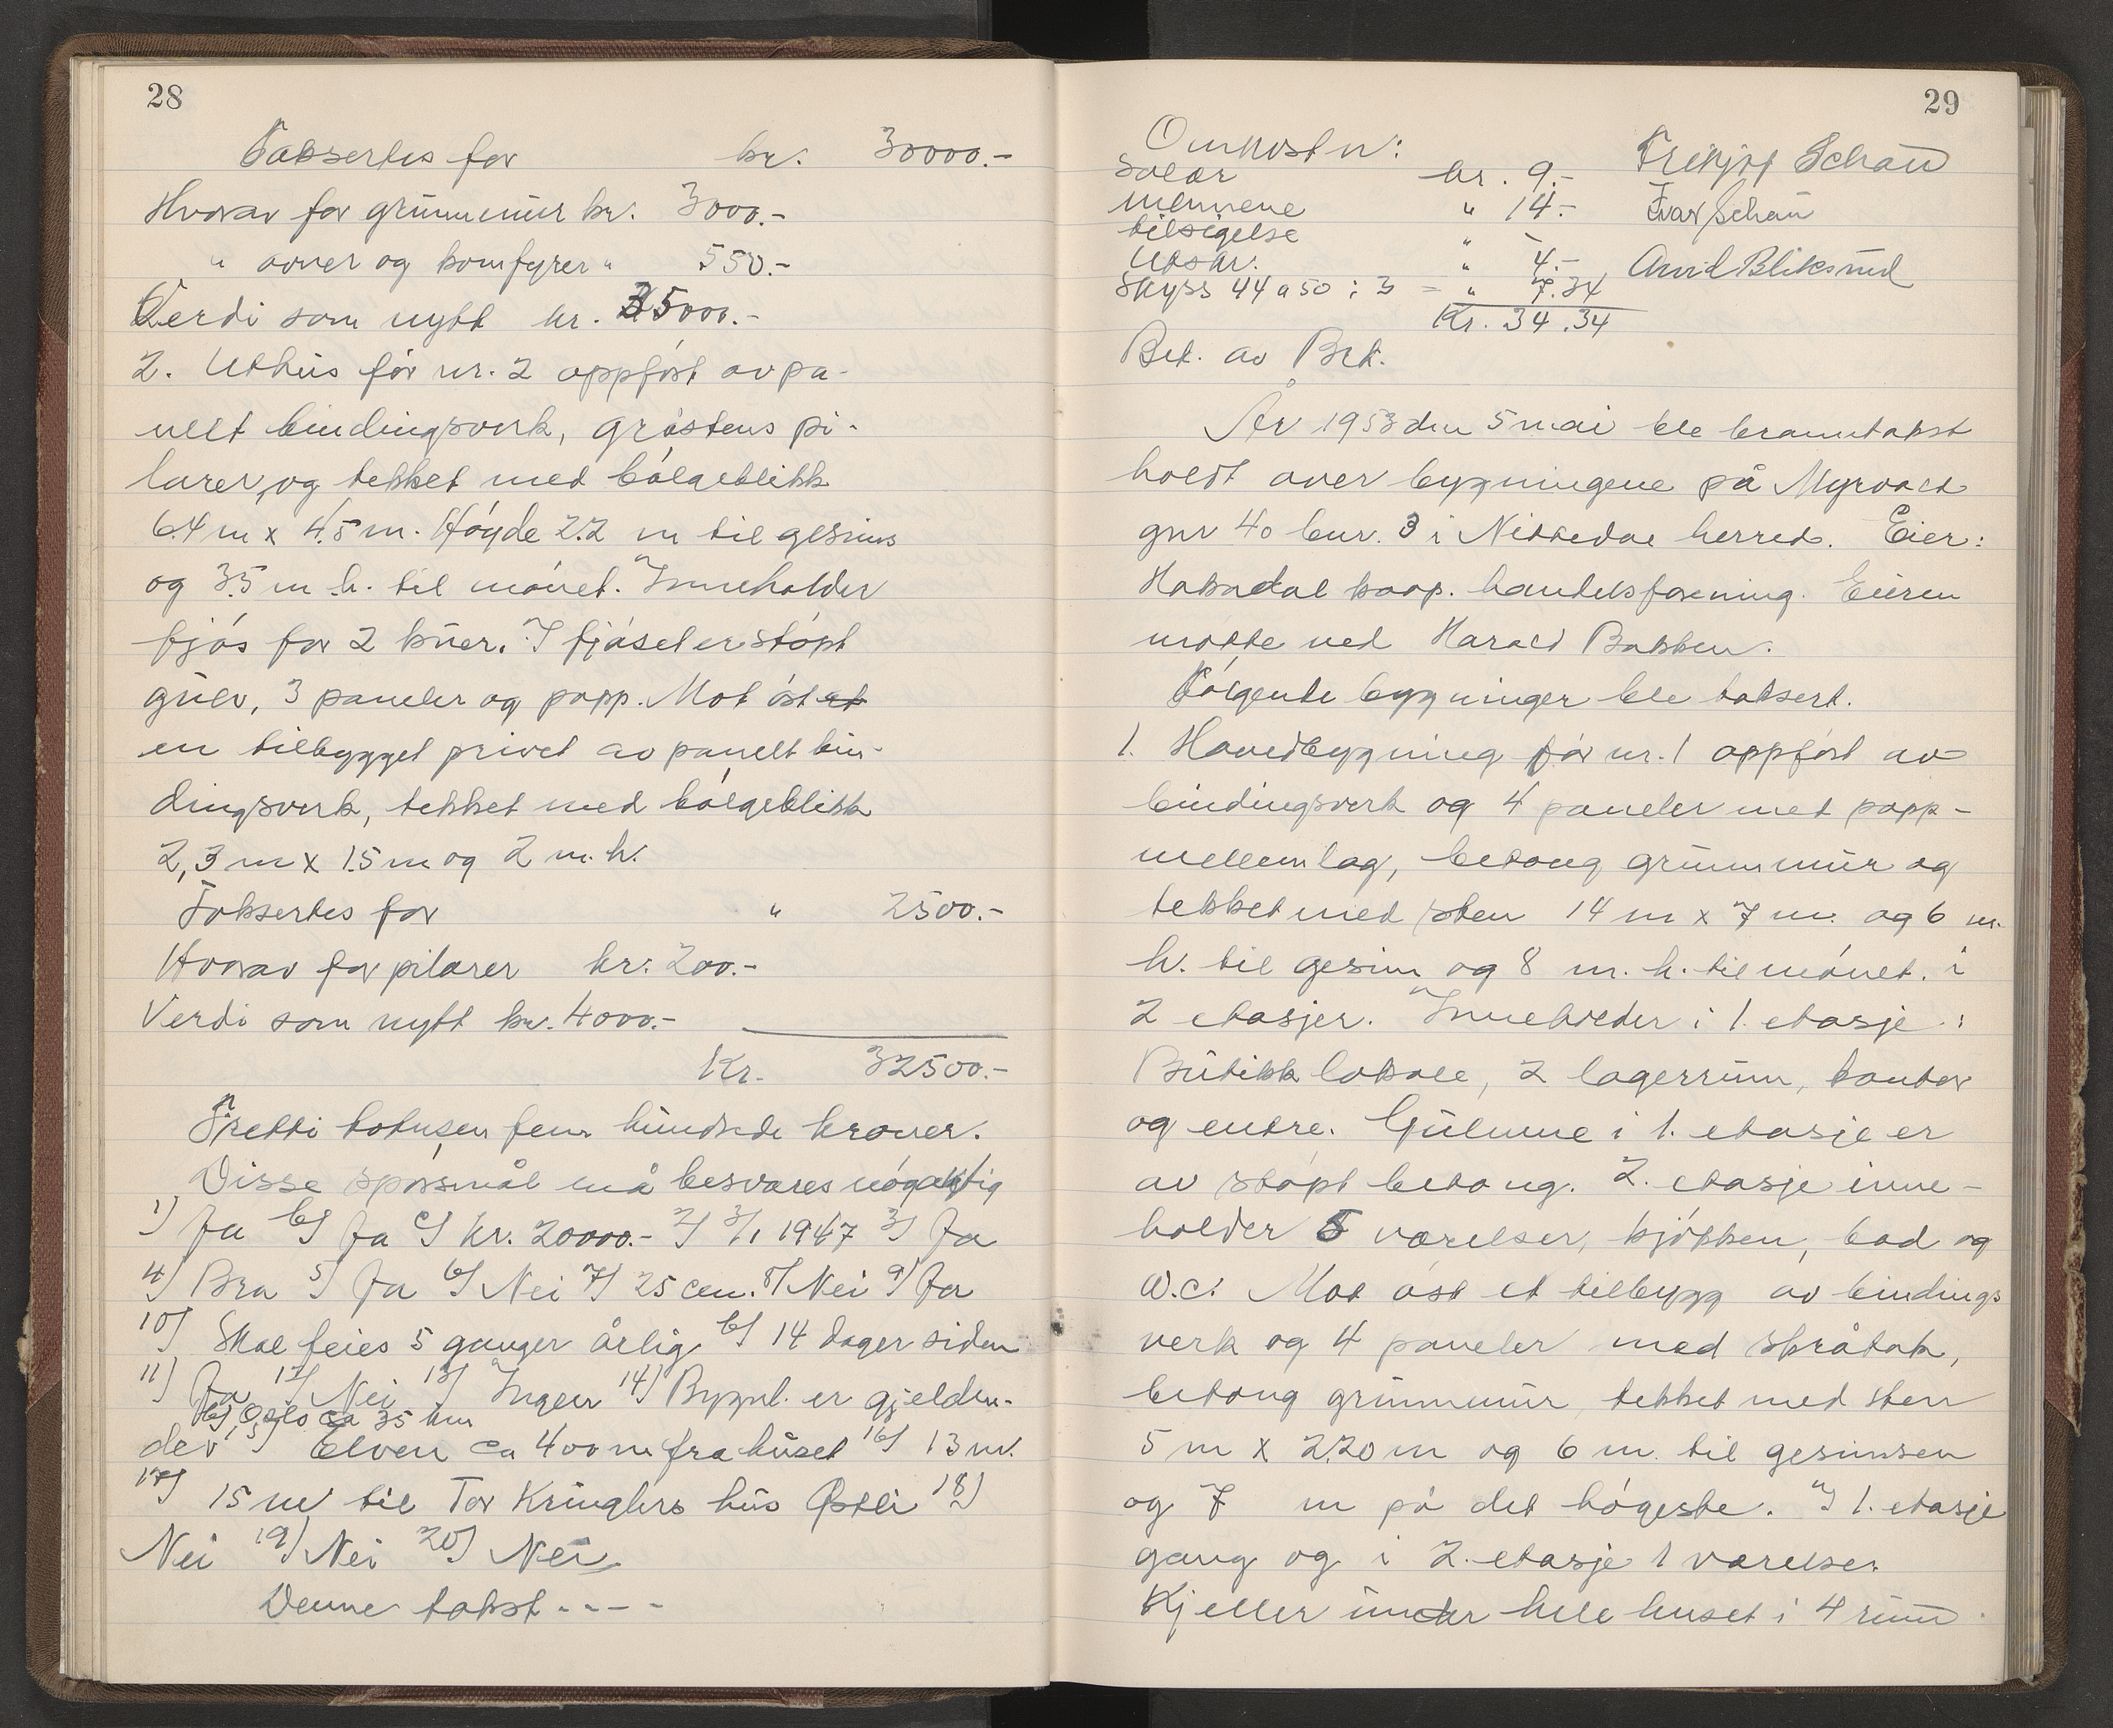 28
Taksertes for kr. 30000.-
Hvorav for grunnmur kr. 3000.-
" ovner og komfyrer " 550.-
Verdi som nytt kr. 35000.-
2. Uthus før nr. 2 oppført av pa-
nelt bindingsverk, gråstens pi-
larer, og tekket med bølgeblikk
6.4 m x 4.5 m. Høyde 2.2 m til gesims
og 3.5 m .h. til mønet. Inneholder
fjøs for 2 kuer. I fjøset er støpt
gulv, 3 paneler og papp. Mot øst et
en tilbygget privet av panelt bin-
dingsverk, tekket med bølgeblikk
2,3 m x 1.5 m og 2 m. h.
Taksertes for " 2500.-
Hvorav for pilarer kr. 200.-
Verdi som nytt kr. 4000.-
Kr. 32500.-
Tretti totusen fem hundrede kroner.
Disse spørsmål må besvares nøgaktig
1) Ja b) Ja c) kr. 20000.- 2) 3/1 1947 3) Ja
4) Bra 5) Ja 6) Nei 7) 25 cm. 8) Nei 9) Ja
10) Skal feies 5 ganger årlig b) 14 dager siden
11) Ja 12) Nei 13) Ingen 14) Bygnl. er gjelden-
b) Oslo ca 35 km
de 15) Elven ca 400 m fra huset 16) 13 m.
17) 15 m til Tor Kringlers hus Østli 18)
Nei 19) Nei 20) Nei
Denne takst ----
29
Omkostn:
Salær kr. 9.- Fridtjof Schau
mennene " 14.- Ivar Schau
tilsigelse " -
Utskr. " 4.- Arvid Bliksrud
Skyss 44 a 50 : 3 = " 7.34
Kr. 34.34
Bet. av Brk.
År 1953 den 5 mai ble branntakst
holdt over bygningene på Myrvold
gnr 40 bnr. 3 i Nittedal herred. Eier:
Hakadal koop. handelsforening. Eieren
møtte ved Harald Bakken.
Følgende bygninger ble taksert.
1. Hovedbygning før nr. 1 oppført av
bindingsverk og 4 paneler med papp-
mellemlag, betong grunnmur og
tekket med sten 14 m x 7 m. og 6 m.
h. til gesims og 8 m. h. til mønet. i
2 etasjer. Inneholder i 1. etasje :
Butikk lokale, 2 lagerrum, kontor
og entre. Gulvene i 1. etasje er
av støpt betong. 2. etasje inne-
holder 5 værelser, kjøkken, bad og
W.C. Mot øst et tilbygg av bindings
verk og 4 paneler med skråtak,
betong grunnmur tekket med sten
5 m x 2.20 m og 6 m. til gesimsen
og 7 m på det høgeste. I 1. etasje
gang og i 2. etasje 1 værelse.
Kjeller under hele huset i 4 rum